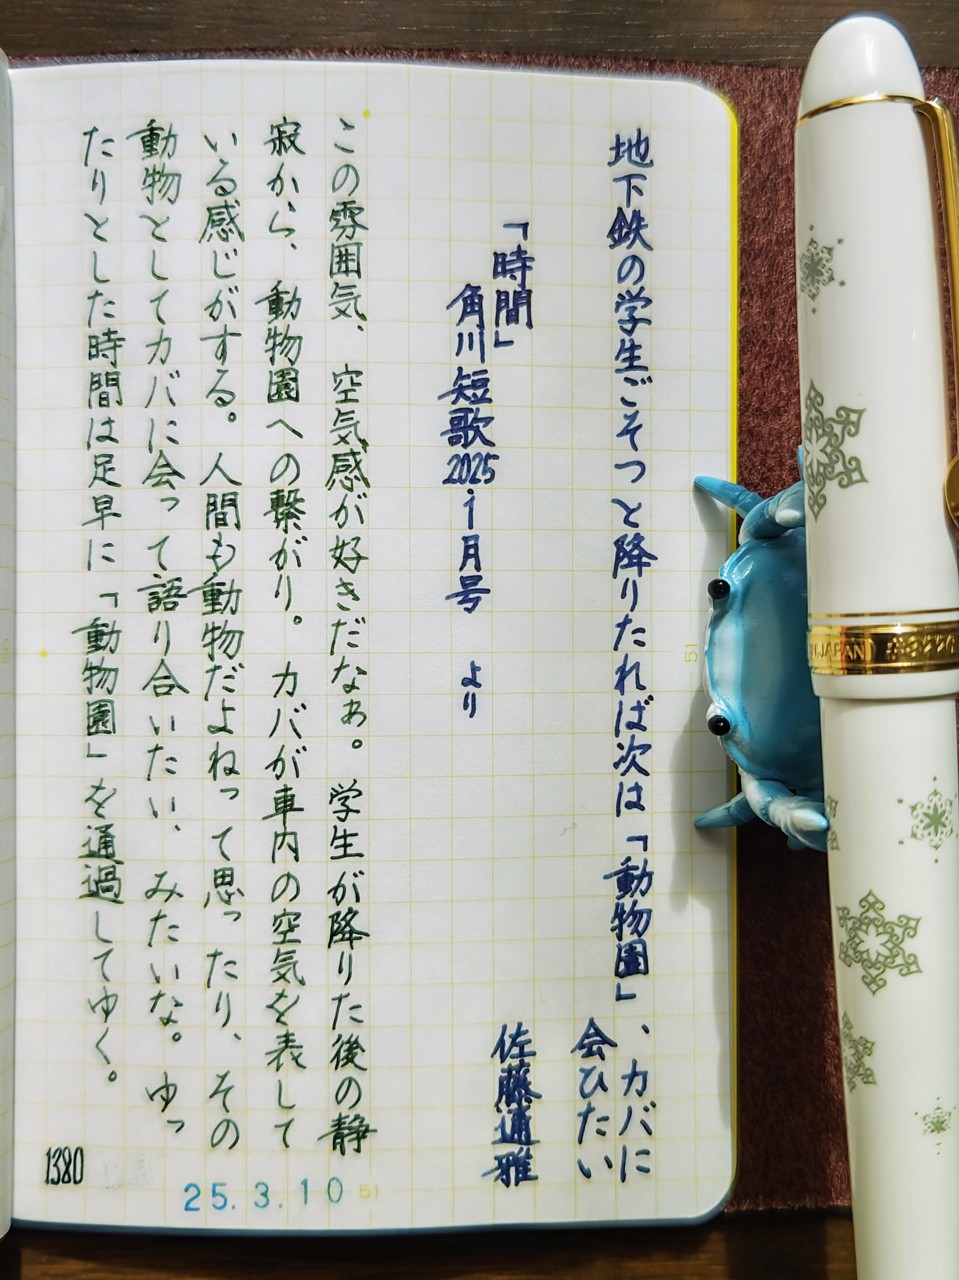 地下鉄の学生ごそつと降りたれば次は「動物園」、カバに
会ひたい
「時間」 佐藤通雅
角川短歌2025.1月号 より
この雰囲気、空気感が好きだなぁ。学生が降りた後の静
寂から、動物園への繋がり。カバが車内の空気を表して
いる感じがする。人間も動物だよねって思ったり、その
動物としてカバに会って語り合いたい、みたいな。ゆっ
たりとした時間は足早に「動物園」を通過してゆく。
1380
25.3.10
51
51
JAPAN